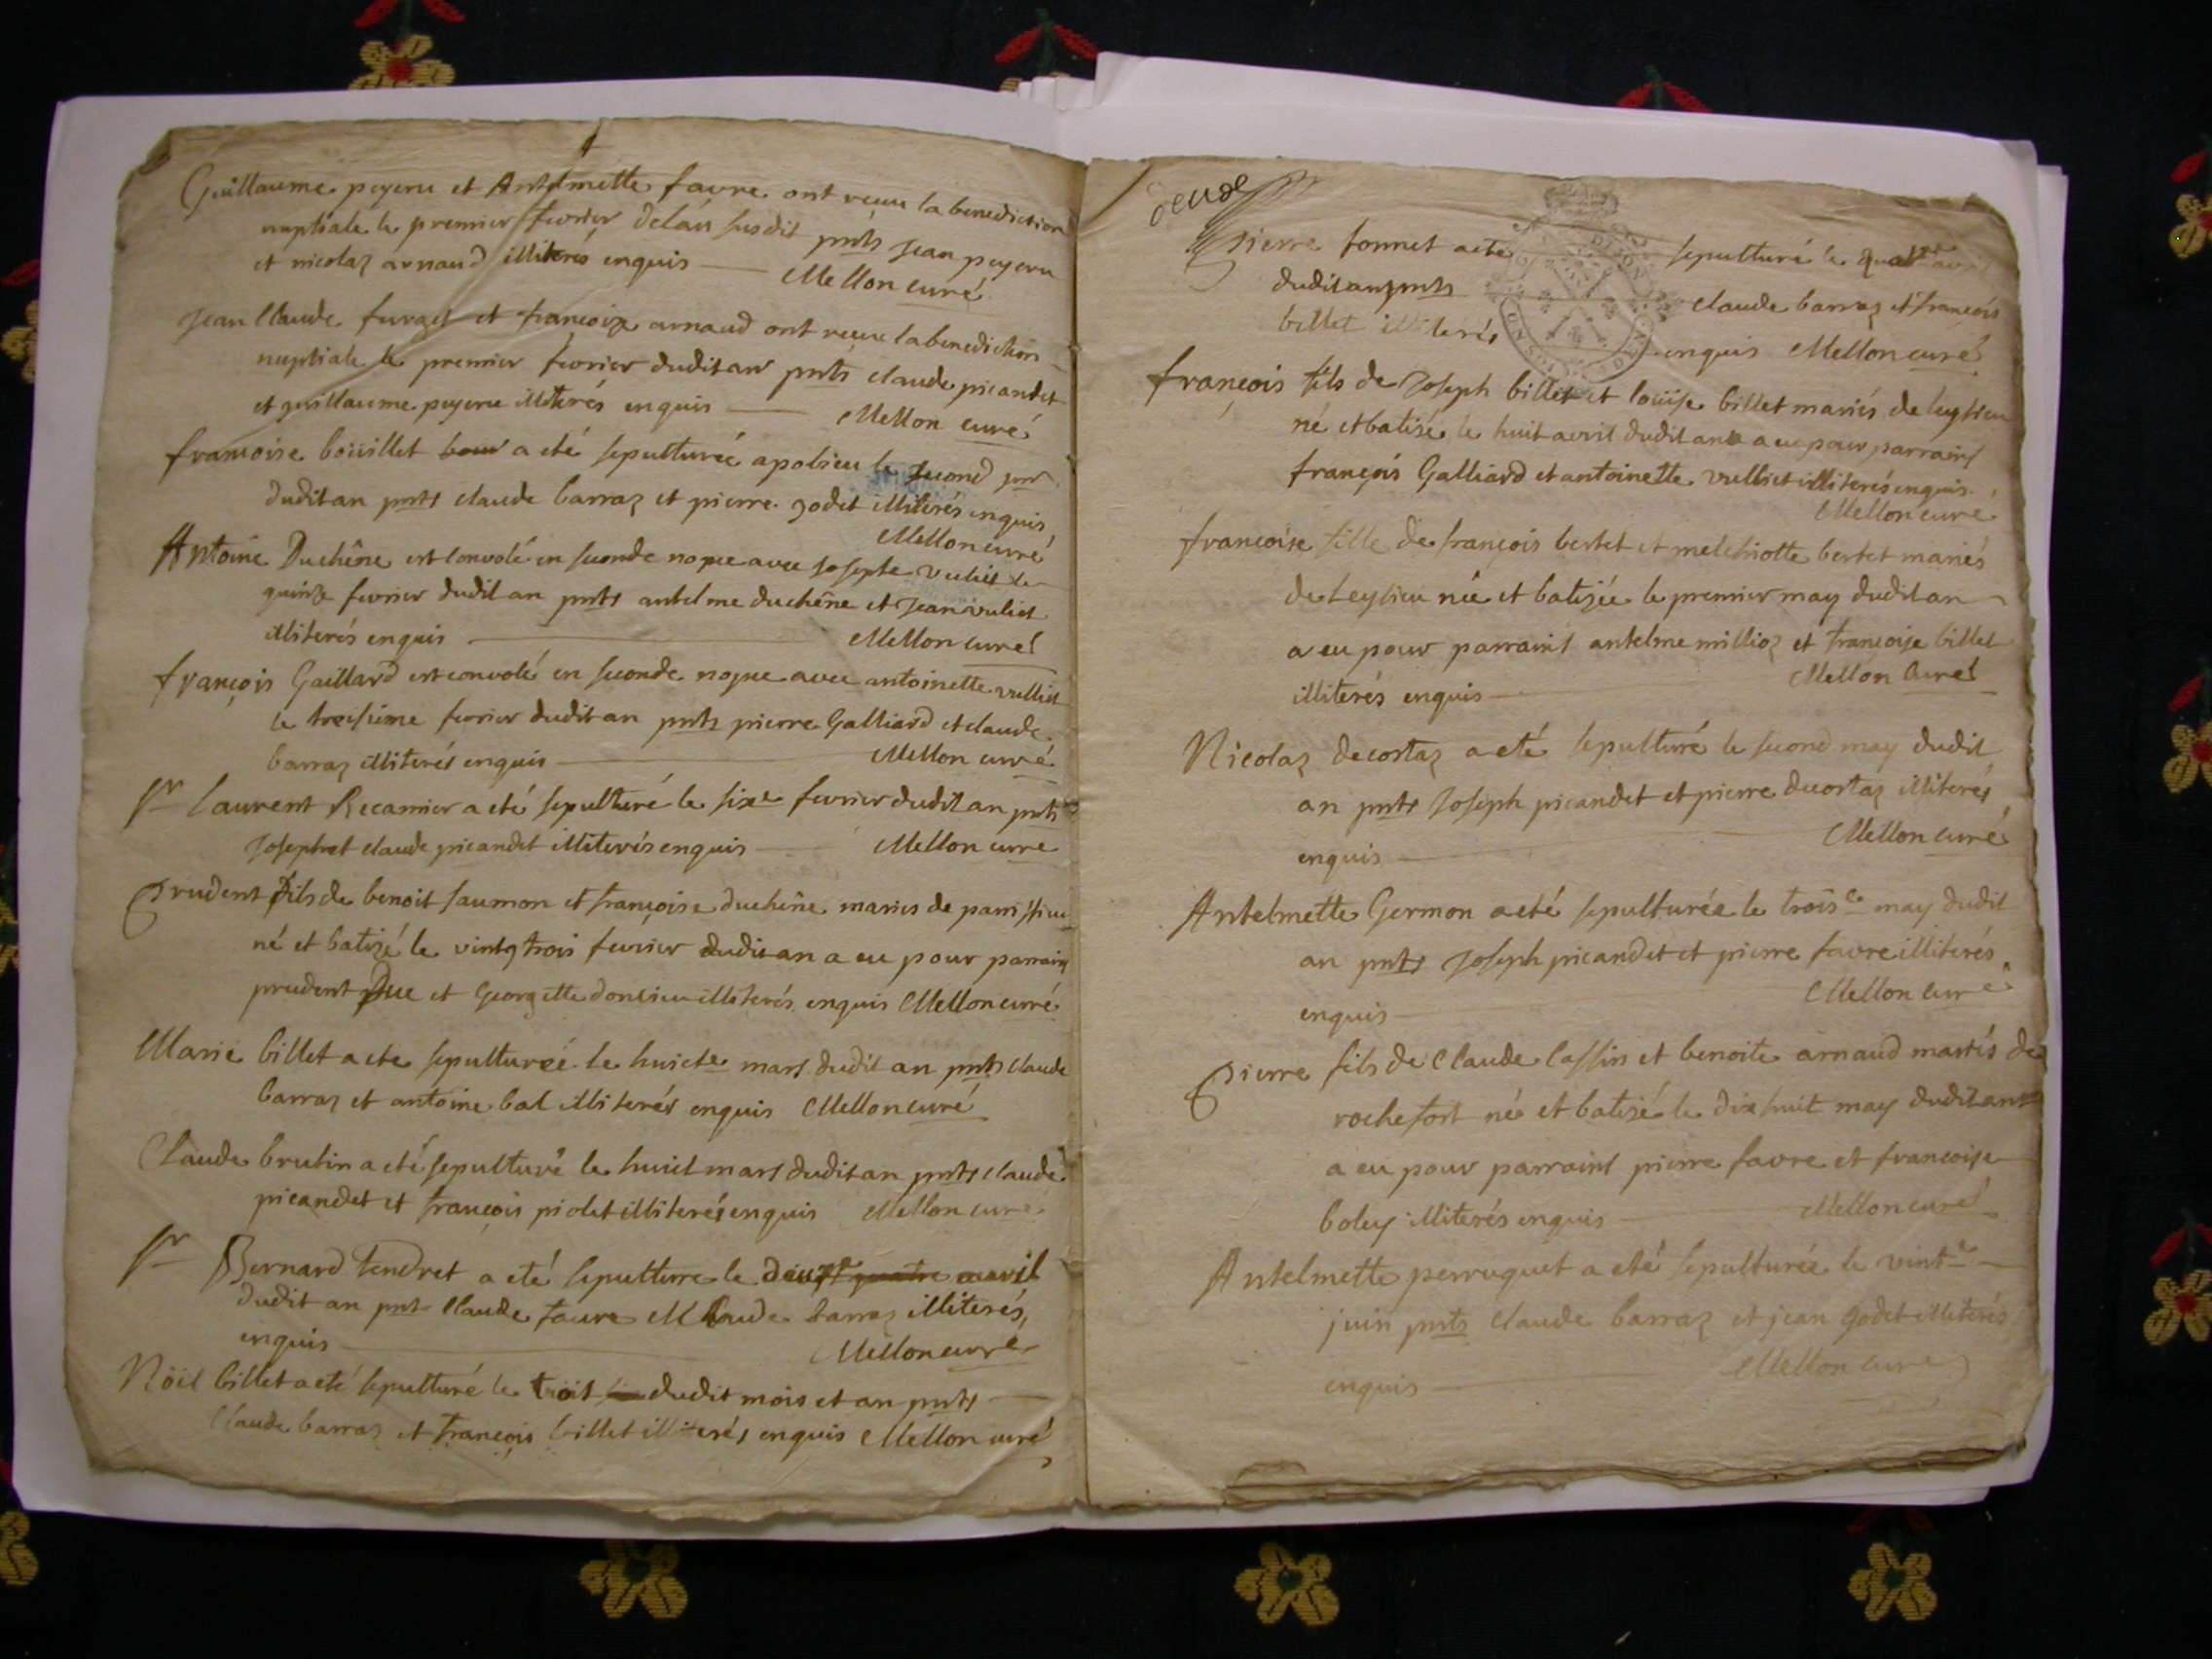 Guillaume peyeru et Antelmette favre ont recu la benediction
nuptiale le premier fevrier delan susdit pnts Jean peyeru
et nicolaz arnaud illiterés enquis Mellon curé
Jean Claude furget et francoise arnaud ont recue la benediction
nuptiale le premier fevrier dudit an pnts claude picandet
et guillaume peyeru illiterés enquis Mellon curé
francoise boüillet a eté sepulturée apolieu le second
dudit an pnts claude barraz et pierre godet illiterés enquis
Mellon curé
Antoine Duchêne est convolé en seconde nopce avec Josepte vuliet le
quinze fevrier dudit an pnts antelme duchêne et Jean vuliet
illiterés enquis Mellon curé
françois Gaillard est convolé en seconde nopce avec antoinette vulliet
le treisième fevrier dudit an pnts pierre Galliard et claude
barraz illiterés enquis Mellon curé
Sr Laurent Recamier a eté sepulturé le sixe fevrier dudit an pnts
Joseph et claude picandet illiterés enquis Mellon curé
Prudent fils de benoit saumon et françoise duchêne mariés de
né et batizé le vintq trois fevrier dudit an a eu pour parrains
prudent Due et Georgette donsieu illiterés enquis Mellon curé
Marie billet a ete sepulturée le huicte mars dudit an pnts claude
barraz et antoine bal illiterés enquis Mellon curé
Claude brutin a eté sepulturé le huict mars dudit an pnts claude
picandet et françois piolet illiterés enquis Mellon curé
Sr Bernard tendret a eté sepulturé le deux quatre avril
dudit an pnt Claude favre et Claude barraz illiterés
enquis Mellon curé
Nöel billet a eté sepulturé le trois dudit mois et an pnts
Claude barraz et françois billet illiterés enquis Mellon curé
deux
Pierre fonnet a ete sepulturé le quatre avril
dudit an pnts claude barraz et françois
billet illiterés enquis Mellon curé
françois fils de Joseph billet et loüise billet mariés de leysieu
né et batisé le huit avril dudit an a eu pour parrains
françois Galliard et antoinette vulliet illiterés enquis
Mellon curé
françoise fille de françois bertet et melchiotte bertet mariés
de Leysieu née et batisée le premier may dudit an
a eu pour parrains antelme millioz et françoise billet
illiterés enquis Mellon Curé
Nicolaz decortaz a eté sepulturé le second may dudit
an pnts Joseph picandet et pierre decortaz illiterés
enquis Mellon curé
Antelmette Germon a eté sepulturée le troise may dudit
an pnts Joseph picandet et pierre favre illiterés
enquis Mellon curé
Pierre fils de Claude Cassin et benoite arnaud mariés de
rochefort né et batisé le dix huit may dudit an
a eu pour parrains pierre favre et francoise
boley illiterés enquis Mellon curé
Antelmette perruquet a eté sepulturée le vinte
juin pnts Claude barraz et jean godet illiterés
enquis Mellon curé